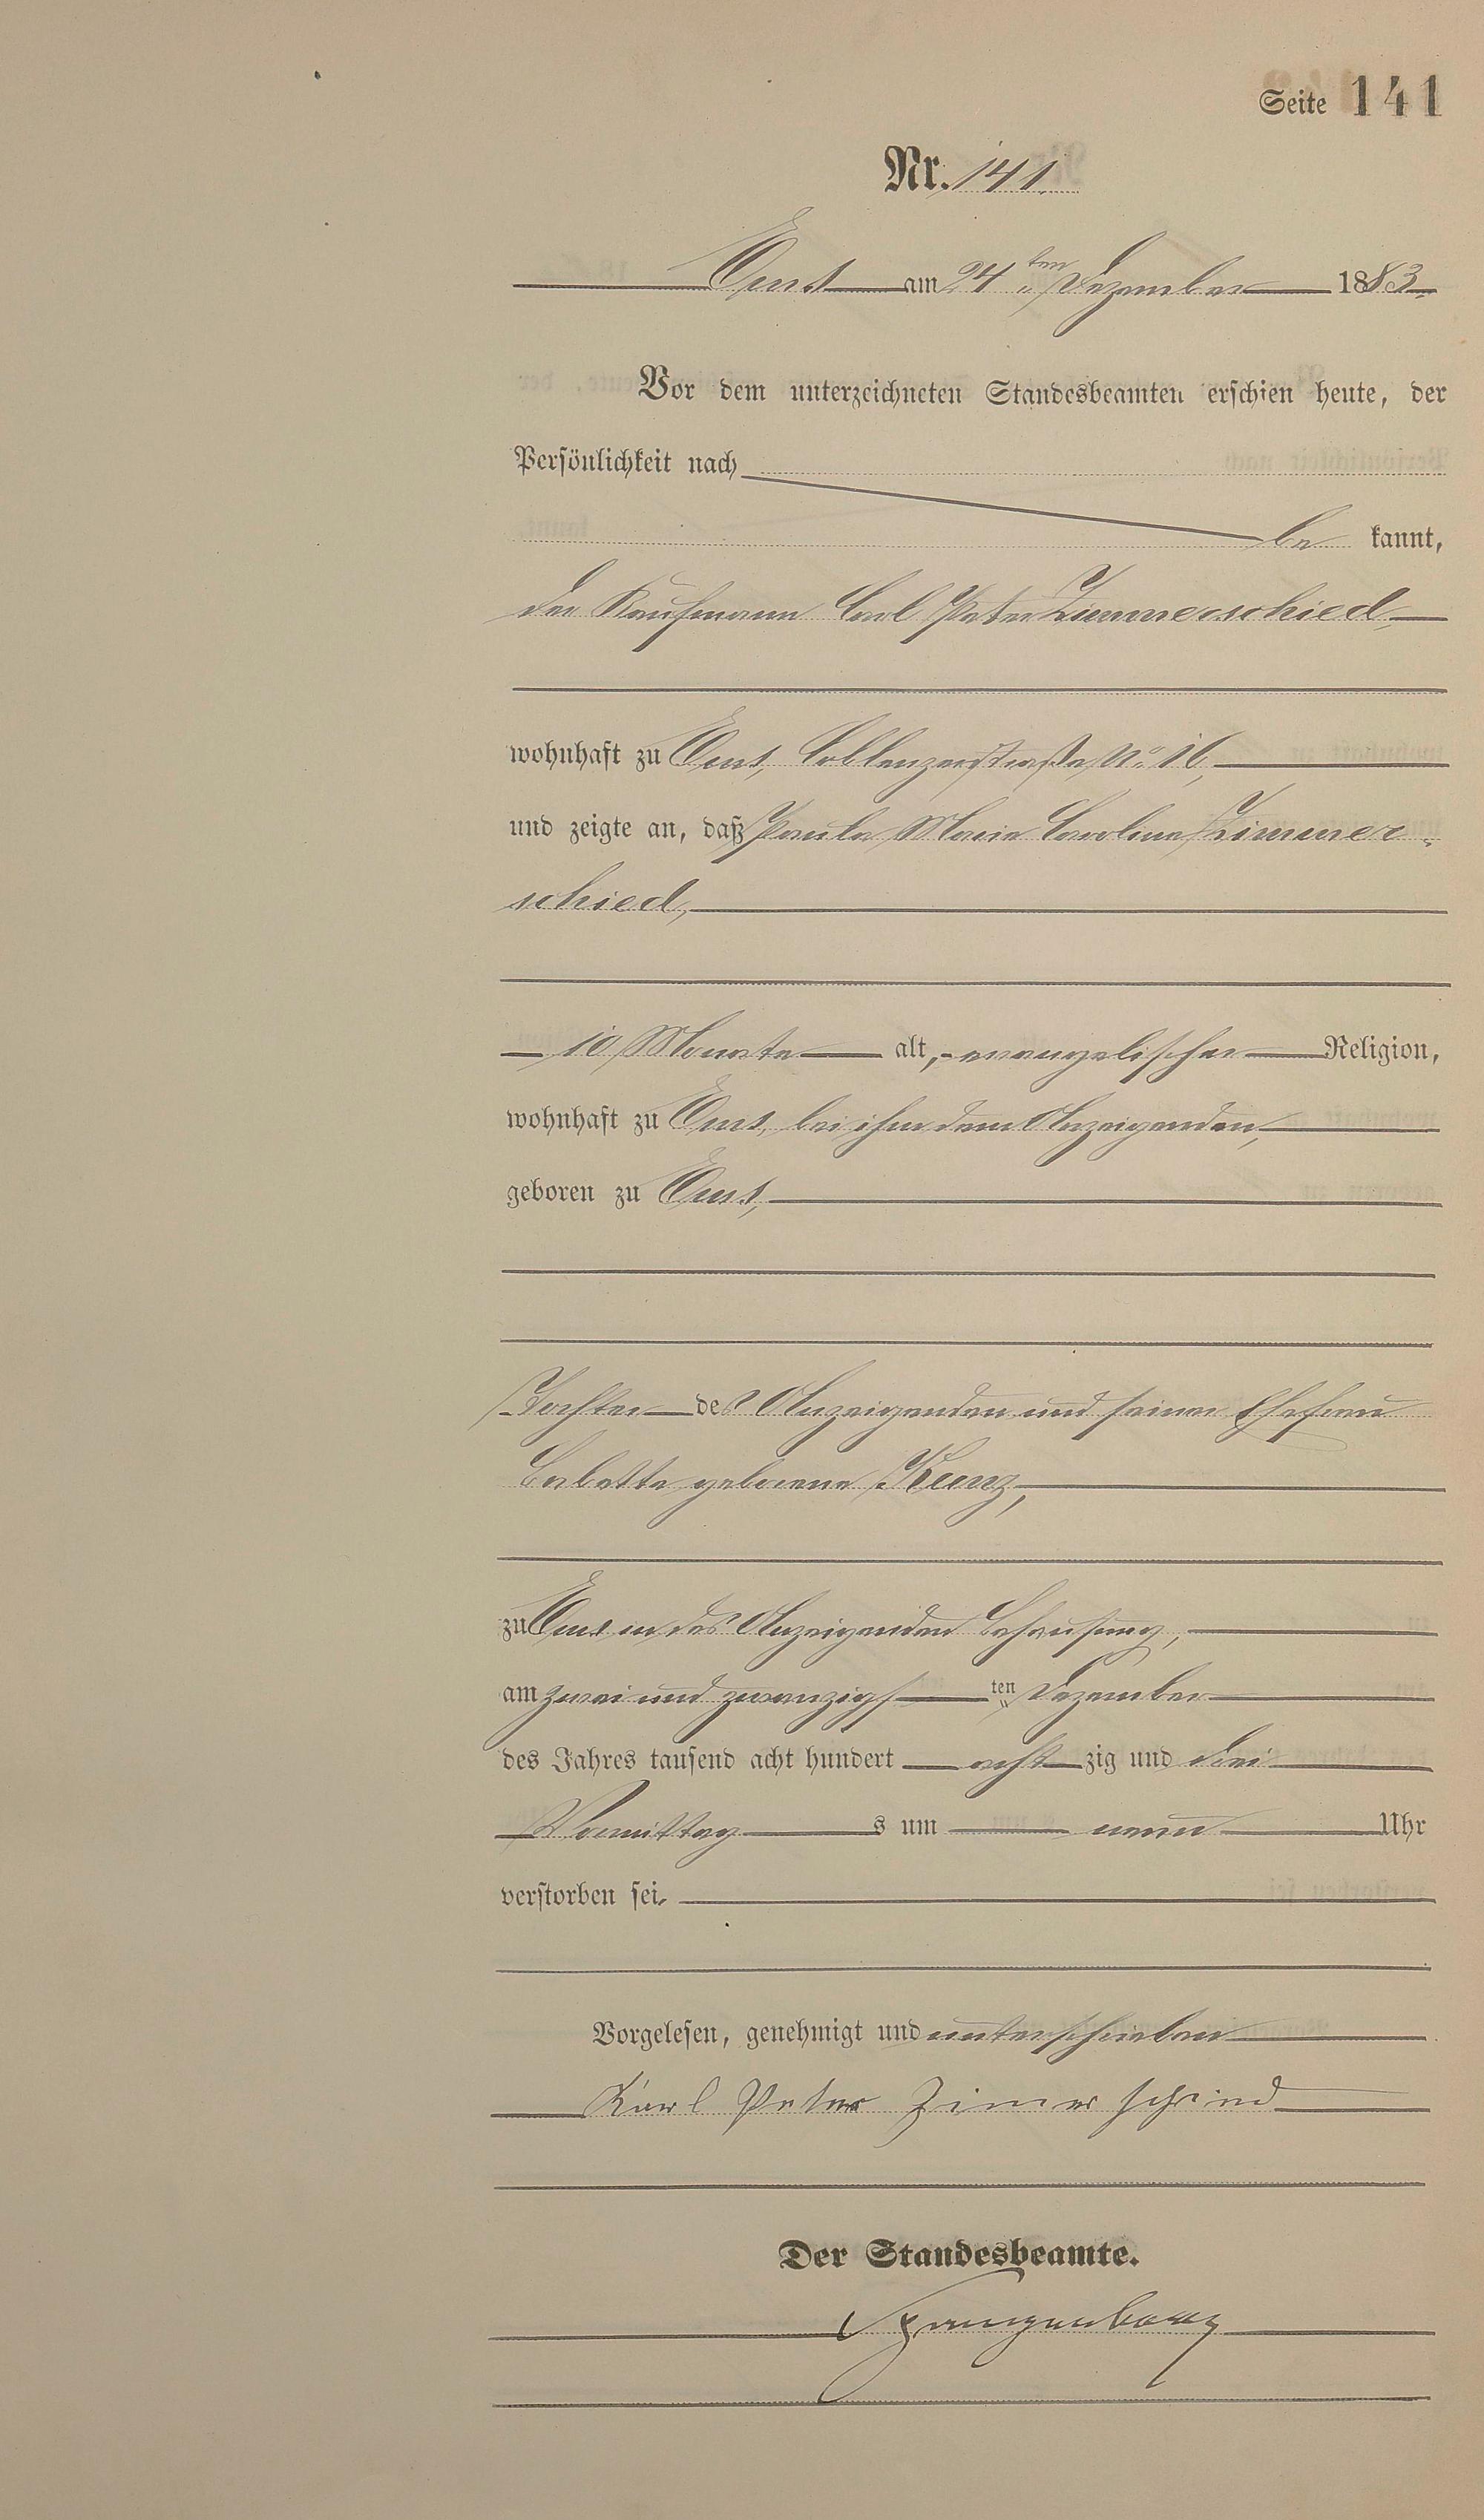 Seite 141
Nr. 141.
Ems am 24ten Dezember 1883.
Vor dem unterzeichneten Standesbeamten erschien heute, der
Persönlichkeit nach
be kannt,
der Kaufmann Carl Peter Zimmerschied,
wohnhaft zu Ems, Coblenzerstraße No 16,
und zeigte an, daß Paula Maria Carolina Zimmer-
schied,
10 Monate alt, evangelischer Religion,
wohnhaft zu Ems, bei ihm dem Anzeigenden,
geboren zu Ems,
Tochter des Anzeigenden und seiner Ehefrau
Babette geborene Kunz,
zu Ems in des Anzeigenden Behausung,
am zwei und zwanzigsten Dezember
des Jahres tausend acht hundert achtzig und drei
Vormittags um neun Uhr
verstorben sei.
Vorgelesen, genehmigt und unterschrieben
Karl Peter Zimerschied
Der Standesbeamte.
Spangenberg